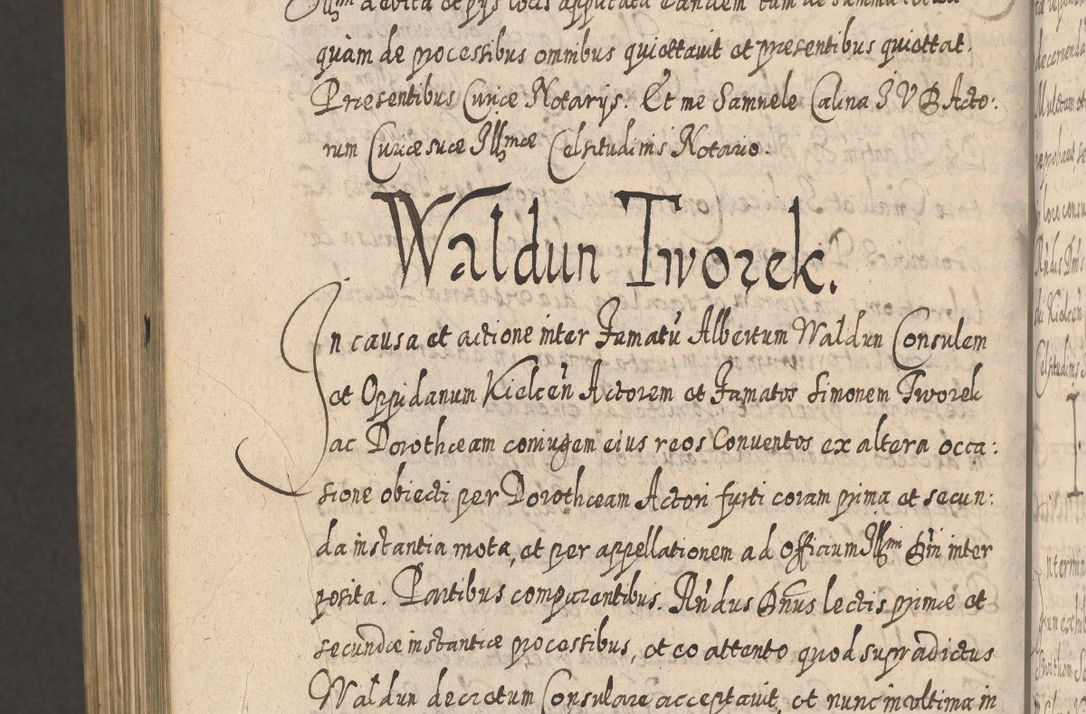 quàm de processibus omnibus quiettavit et presentibus quiettat.
Præsentibus Curiæ Notarijs. Et me Samuele Calina I V D Acto:
rum Curiæ suæ Illmæ Celsitudinis Notario.
Waldun Tworek.
In causa et actione inter Famatū Albertum Waldun Consulem
et Oppidanum Kielceñ Actorem et Famatos Simonem Tworek
ac Dorotheam coniugem eius reos Conventos ex altera occa:
sione obiecti per Dorotheam Actori furti coram prima et secun:
da instantia mota, et per appellationem ad Officium Illmi Dñi inter
posita. Partibus comparentibus. Rñdus Dñus lectis primæ et
secundæ instantiæ processibus, et eo attento quod supradictus
Waldun decretum Consulare acceptavit, et nunc in ultima in